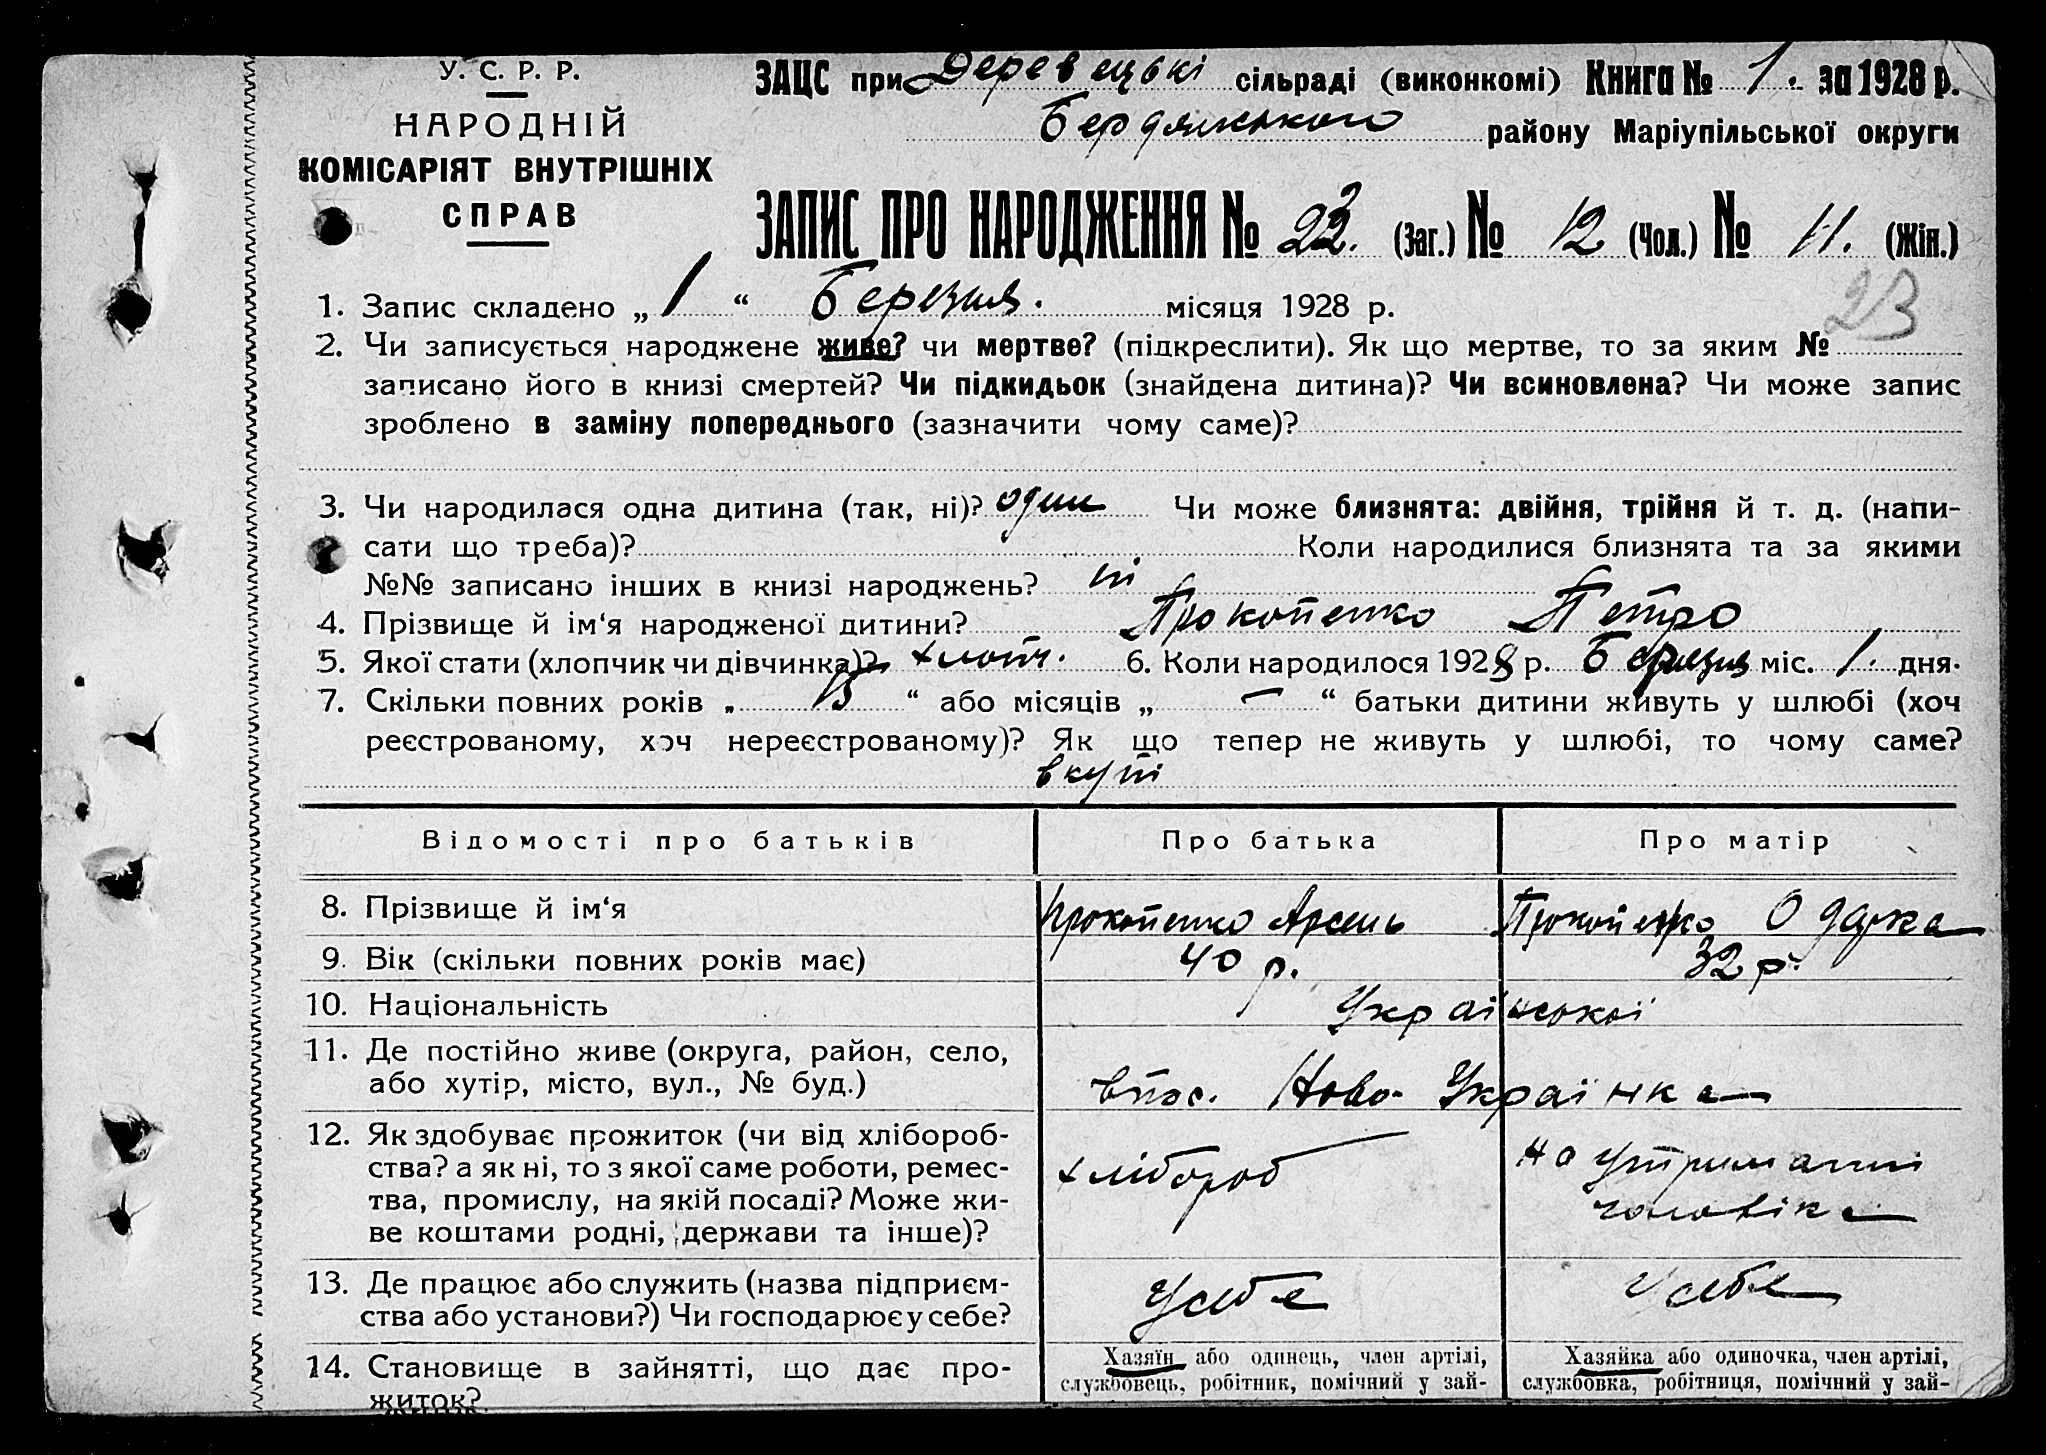 У. С. Р. Р.
НАРОДНІЙ
КОМІСАРІЯТ ВНУТРІШНІХ
СПРАВ
ЗАЦС при Деревецькі сільраді (виконкомі) Книга № 1. за 1928 р.
Бердянського району Маріупільської округи
ЗАПИС ПРО НАРОДЖЕННЯ № 23. (Заг.) № 12 (Чол.) № 11. (Жін.)
23
1. Запис складено „ 1 “ Березня. місяця 1928 р.
2. Чи записується народжене живе? чи мертве? (підкреслити). Як що мертве, то за яким №
записано його в книзі смертей? Чи підкидьок (знайдена дитина)? Чи всиновлена? Чи може запис
зроблено в заміну попереднього (зазначити чому саме)?
3. Чи народилася одна дитина (так, ні)? один Чи може близнята: двійня, трійня й т. д. (напи-
сати що треба)? Коли народилися близнята та за якими
№№ записано інших в книзі народжень? ні
4. Прізвище й ім‘я народженої дитини? Прокопенко Петро
5. Якої стати (хлопчик чи дівчинка)? хлопч. 6. Коли народилося 1928 р. Березня міс. 1. дня.
7. Скільки повних років „ 15 “ або місяців „ — “ батьки дитини живуть у шлюбі (хоч
реєстрованому, хоч нереєстрованому)? Як що тепер не живуть у шлюбі, то чому саме?
вкупі
Відомості про батьків Про батька Про матір
8. Прізвище й ім‘я Прокопенко Арсень Прокопенко Одарка
9. Вік (скільки повних років має) 40 р. 32 р.
10. Національність Української
11. Де постійно живе (округа, район, село,
або хутір, місто, вул., № буд.) впос. Ново-Українка
12. Як здобуває прожиток (чи від хлібороб-
ства? а як ні, то з якої саме роботи, ремес-
тва, промислу, на якій посаді? Може жи-
ве коштами родні, держави та інше)?
хлібороб
на утриманні
чоловіка
13. Де працює або служить (назва підприєм-
ства або установи?) Чи господарює у себе?
У себе У себе
14. Становище в зайнятті, що дає про-
житок?
Хазяїн або одинець, член артілі,
службовець, робітник, помічний у зай-
Хазяйка або одиночка, член артілі,
службовка, робітниця, помічний у зай-